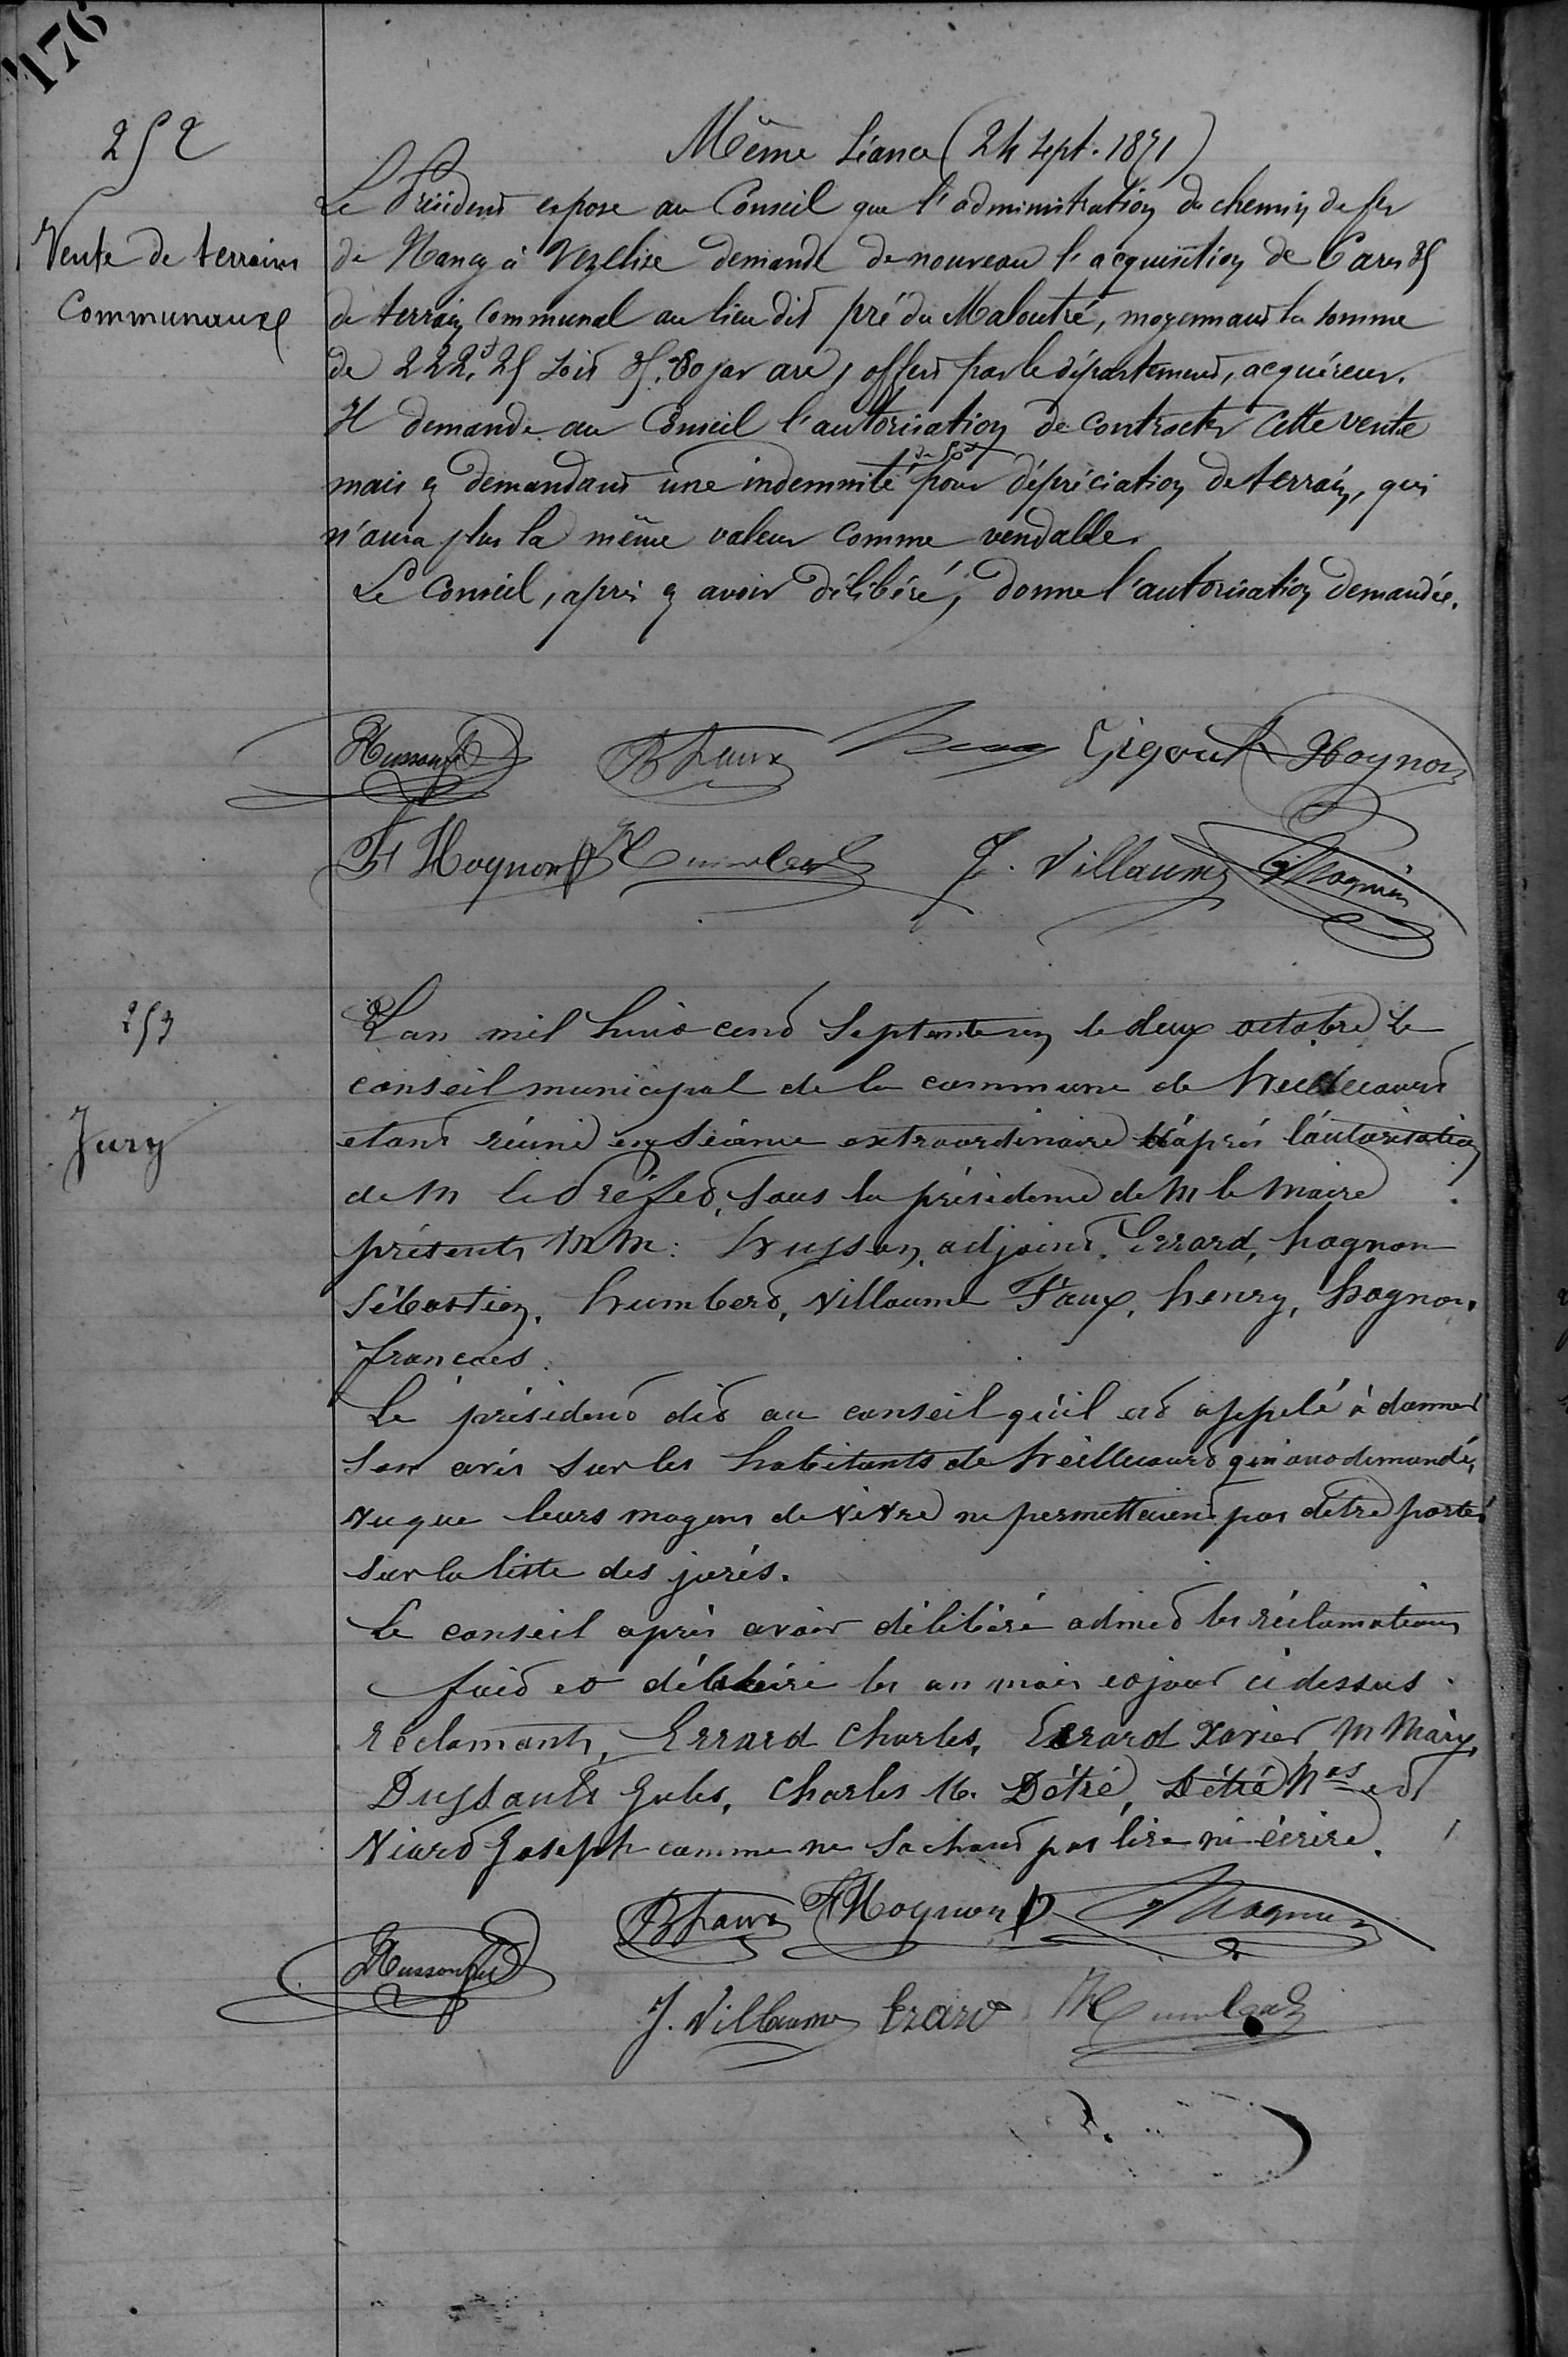 176
252
Vente de terrains
Communaux
Même Séance (24 Sept. 1871)
Le Président expose au Conseil que l'administration du chemin de fer
de Nancy à Vezelise demande de nouveau l'acquisition de 6 ares 35
de terrain communal au lieu dit pré du Maloutré, moyennant la somme
de 222,25 soit 35.80 par are, offert par le département, acquéreur.
Il demande au Conseil l'autorisation de contracter cette vente
mais en demandant une indemnité de 50 pour dépréciation de terrain, qui
n'aura plus la même valeur comme vendable.
Le Conseil, après en avoir délibéré, donne l'autorisation demandée.
Husson B Faux Henry Gigout Hognon
F Hognon Humbert J. Villaume Hognon
253
Jury
L'an mil huit cent septante un le deux octobre le
conseil municipal de la commune de heillecourt
etant réuni en séance extraordinaire d'après l'autorisation
de M le Préfet, sous la présidence de M le Maire
présents MM: husson, adjoint, Errard, hognon
Sébastien, humbert, Villaume Faux, henry, hognon
francois.
Le président dit au conseil qu'il est appelé à donner
son avis sur les habitants de heillecourt qui ont demandé,
vu que leurs moyens de vivre ne permettaient pas d'être portés
sur la liste des jurés.
Le conseil après avoir délibéré admet les réclamations
fait et délibéré les an mois et jour ci dessus
réclamants, Errard Charles, Errard Xavier M Mary,
Dussault Jules, Charles N. Détré, Détré Nas et
Viard Joseph comme ne sachant pas lire ni écrire.
B Faux F Hognon Hognon
Husson
J. Villaume Erard Humbert